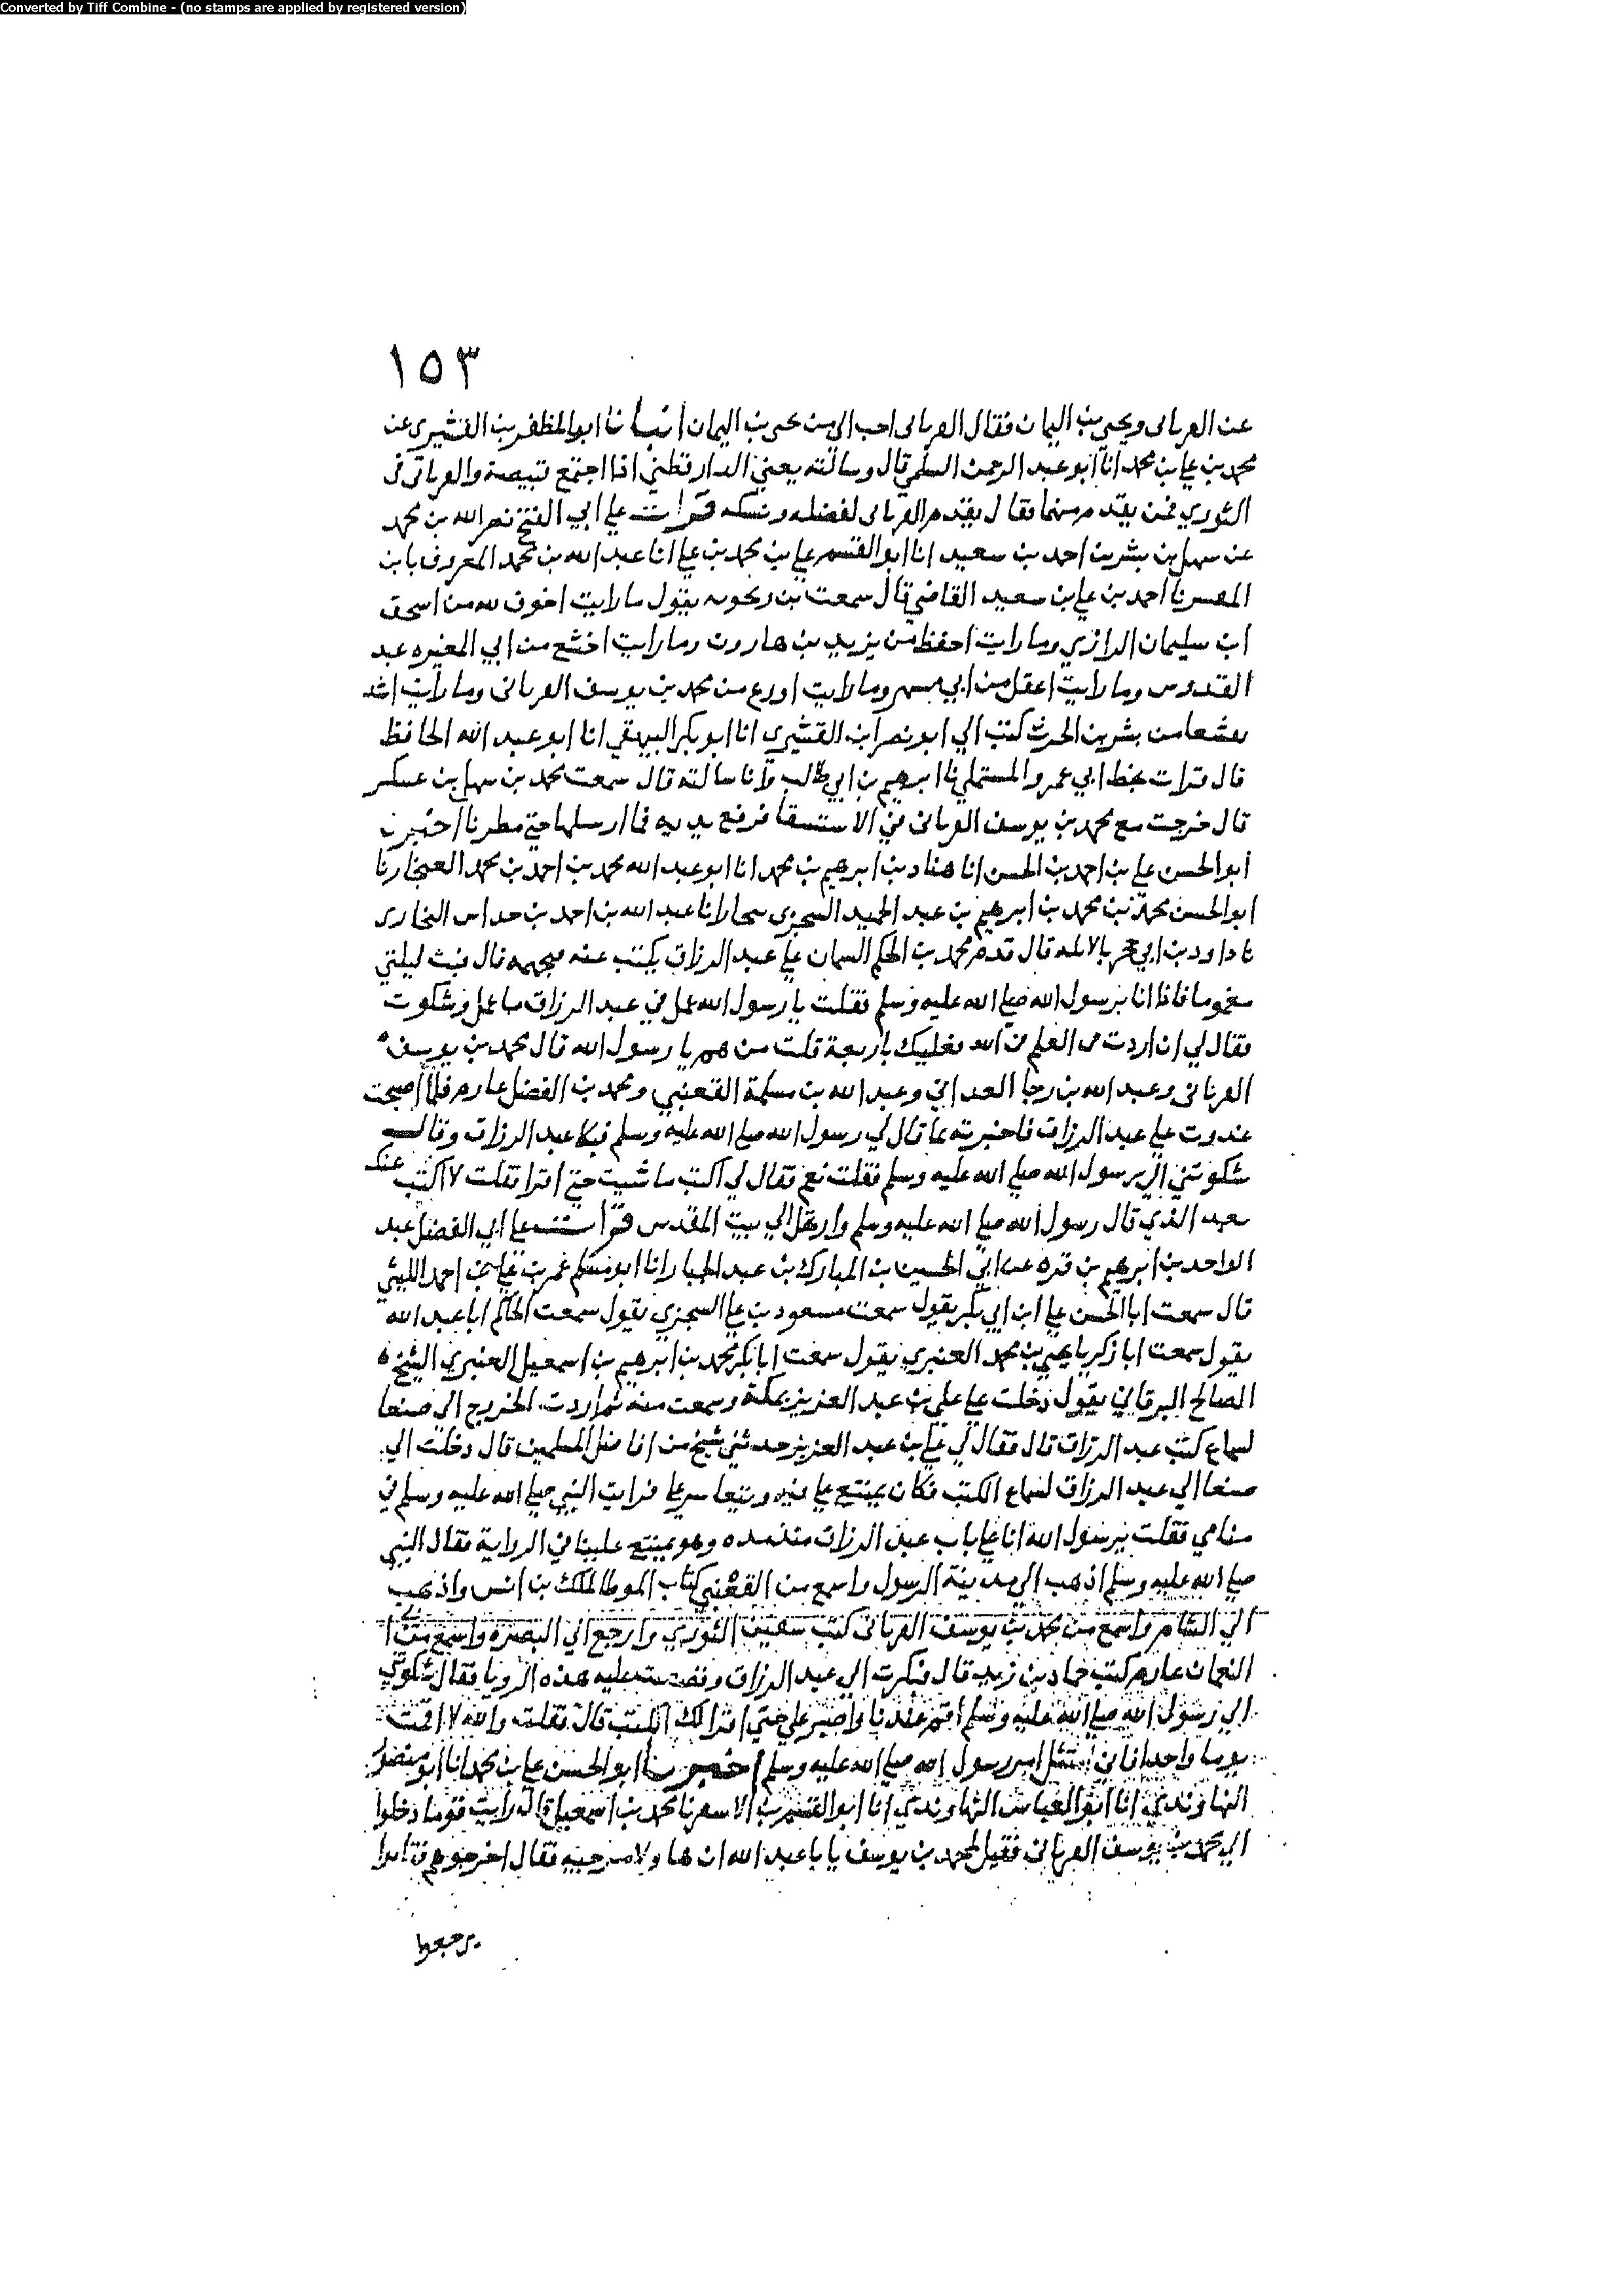 Converted by Tiff Combine - (no stamps are applied by registered version)
١٥٣
عن الفريابى ويحيى بن اليمان فقال الفريابى احب الى من يحيى بن اليمان انبانا ابوالمظفر بن القشيرى عن
محمد بن علي بن محمد انا ابو عبد الرحمن السلمي قال وسالته يعني الدارقطني اذا اجتمع قبيصة والفريابى فى
الثوري فمن يقدم منهما فقال يقدم الفريابى لفضله ونسكه قرات علي ابي الفتح نصر الله بن محمد
عن سهل بن بشر بن احمد بن سعيد انا ابو القسم علي بن محمد بن علي انا عبد الله بن محمد المعروف بابن
المفسر نا احمد بن علي بن سعيد القاضي قال سمعت بن زنجويه يقول ما رايت اخوف لله من اسحق
ابن سليمان الرازي وما رايت احفظ من يزيد بن هارون وما رايت اخشع من ابي المغيره عبد
القدوس وما رايت اعقل من ابي مسهر وما رايت اورع من محمد بن يوسف الفريابى وما رايت اشد
تقشعا من بشر بن الحرث كتب الي ابو نصر ابن القشيري انا ابو بكر البيهقي انا ابو عبد الله الحافظ
قال قرات بخط ابي عمرو المستملي نا ابرهيم بن ابي طالب وانا سالته قال سمعت محمد بن سهل بن عسكر
قال خرجت مع محمد بن يوسف الفريابى في الاستسقا فرفع يديه فما ارسلها حتي مطرنا اخبرنا
ابو الحسن علي بن احمد بن الحسن انا هناد بن ابرهيم بن محمد انا ابو عبد الله محمد بن احمد بن محمد الغنجار نا
ابو الحسن محمد بن محمد بن ابرهيم بن عبد الحميد السجزى ببخارا نا عبد الله بن احمد بن حداس البخارى
نا داود بن ابي بالابله قال قدم محمد بن الحكم السمان علي عبد الرزاق يكتب عنه فجهمه قال فبت ليلتي
مغموما فاذا انا برسول الله صلي الله عليه وسلم فقلت يا رسول الله عمل في عبد الرزاق ما عمل وشكوت
فقال لي ان اردت العلم من الله فعليك باربعة قلت من هم يا رسول الله قال محمد بن يوسف
الفريابى وعبد الله بن رجا الغداني وعبد الله بن مسلمة القعنبي ومحمد بن الفضل عارم فلما اصبحت
غدوت علي عبد الرزاق فاخبرته بما قال لي رسول الله صلي الله عليه وسلم فبكا عبد الرزاق وقال
شكوتني الي رسول الله صلي الله عليه وسلم فقلت نعم فقال لي اكتب ما شيت حتي اقرا فقلت لا اكتب عنك
بعد الذي قال رسول الله صلي الله عليه وسلم وارتحل الي بيت المقدس قرات علي ابي الفضل عبد
الواحد بن ابرهيم بن قره عن ابي الحسين بن المبارك بن عبد الجبار انا ابو مسلم عمر بن علي بن احمد الليثي
قال سمعت ابا الحسن علي ابن ابي بكر يقول سمعت مسعود بن علي السجزي يقول سمعت الحاكم ابا عبد الله
يقول سمعت ابا زكريا يحيي بن محمد العنبري يقول سمعت ابا بكر محمد بن ابرهيم بن اسمعيل العنبري الشيخ
الصالح البرقاني يقول دخلت علي علي بن عبد العزيز بمكة وسمعت منه ثم اردت الخروج الي صنعا
لسماع كتب عبد الرزاق قال فقال لي علي بن عبد العزيز حدثني شيخ من افاضل المسلمين قال دخلت الي
صنعا الي عبد الرزاق لسماع الكتب فكان يمتنع علي فيه ويتعاسر علي فرايت النبي صلي الله عليه وسلم في
منامي فقلت يرسول الله انا علي باب عبد الرزاق منذ مده وهو يمتنع علينا في الرواية فقال النبي
صلي الله عليه وسلم اذهب الي مدينة الرسول واسمع من القعنبي كتاب الموطا لملك بن انس واذهب
الي الشام واسمع من محمد بن يوسف الفريابى كتب سفين الثوري وارجع الي البصره واسمع من ابي
النعمان عارم كتب حماد بن زيد قال فبكرت الي عبد الرزاق وقصصت عليه هذه الرويا فقال شكوتني
الي رسول الله صلي الله عليه وسلم اقم عندنا واصبر علي حتي اقرا لك الكتب قال فقلت والله لا اقمت
يوما واحدا فاني امتثل امر رسول الله صلي الله عليه وسلم اخبرنا ابو الحسن علي بن محمد انا ابو منصور
النهاوندي انا ابو العباس النهاوندي انا ابو القسم بن الاسقر نا محمد بن اسمعيل قال رايت قوما دخلوا
الي محمد بن يوسف الفريابى فقيل لمحمد بن يوسف يا با عبد الله ان هاولا مرجيه فقال اخرجوهم فتابوا
ورجعوا